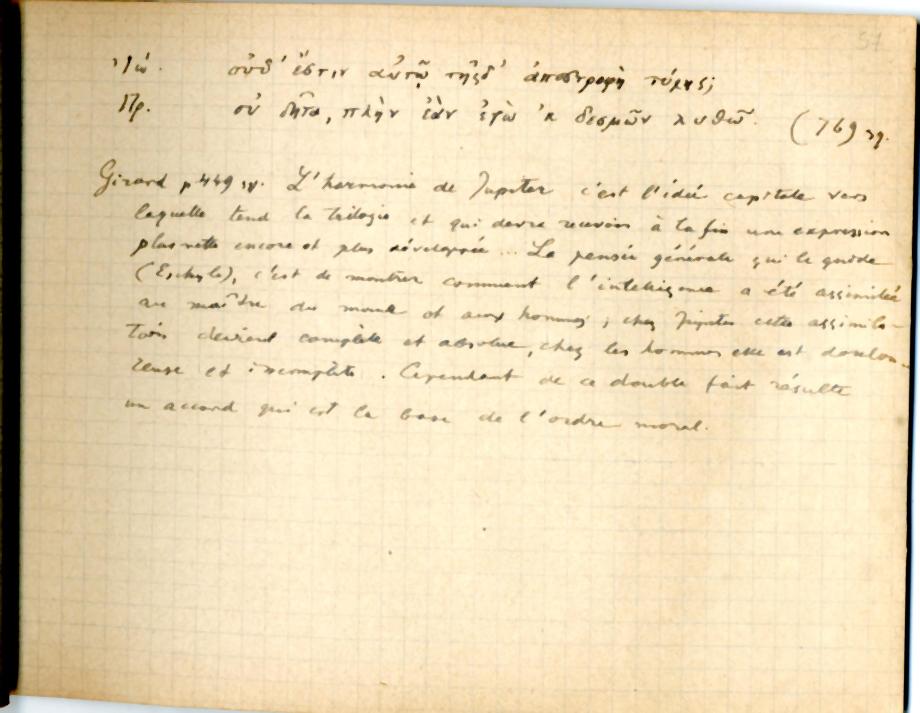 57
Ἰώ. οὐδ' ἔστιν αὐτῷ τῆσδ' ἀποστροφὴ τύχης;
Πρ. οὐ δῆτα, πλὴν ἐὰν ἐγὼ 'κ δεσμῶν λυθῶ. (769 sq.
Girard p 449 sq. L'harmonie de Jupiter c'est l'idée capitale vers
laquelle tend la trilogie et qui devra recevoir à la fin une expression
plus nette encore et plus développée ... La pensée générale qui le guide
(Eschyle), c'est de montrer comment l'intelligence a été assimilée
au maître du monde et aux hommes; chez Jupiter cette assimila-
tion devient complète et absolue, chez les hommes elle est doulou-
reuse et incomplète. Cependant de ce double fait résulte
un accord qui est la base de l'ordre moral.